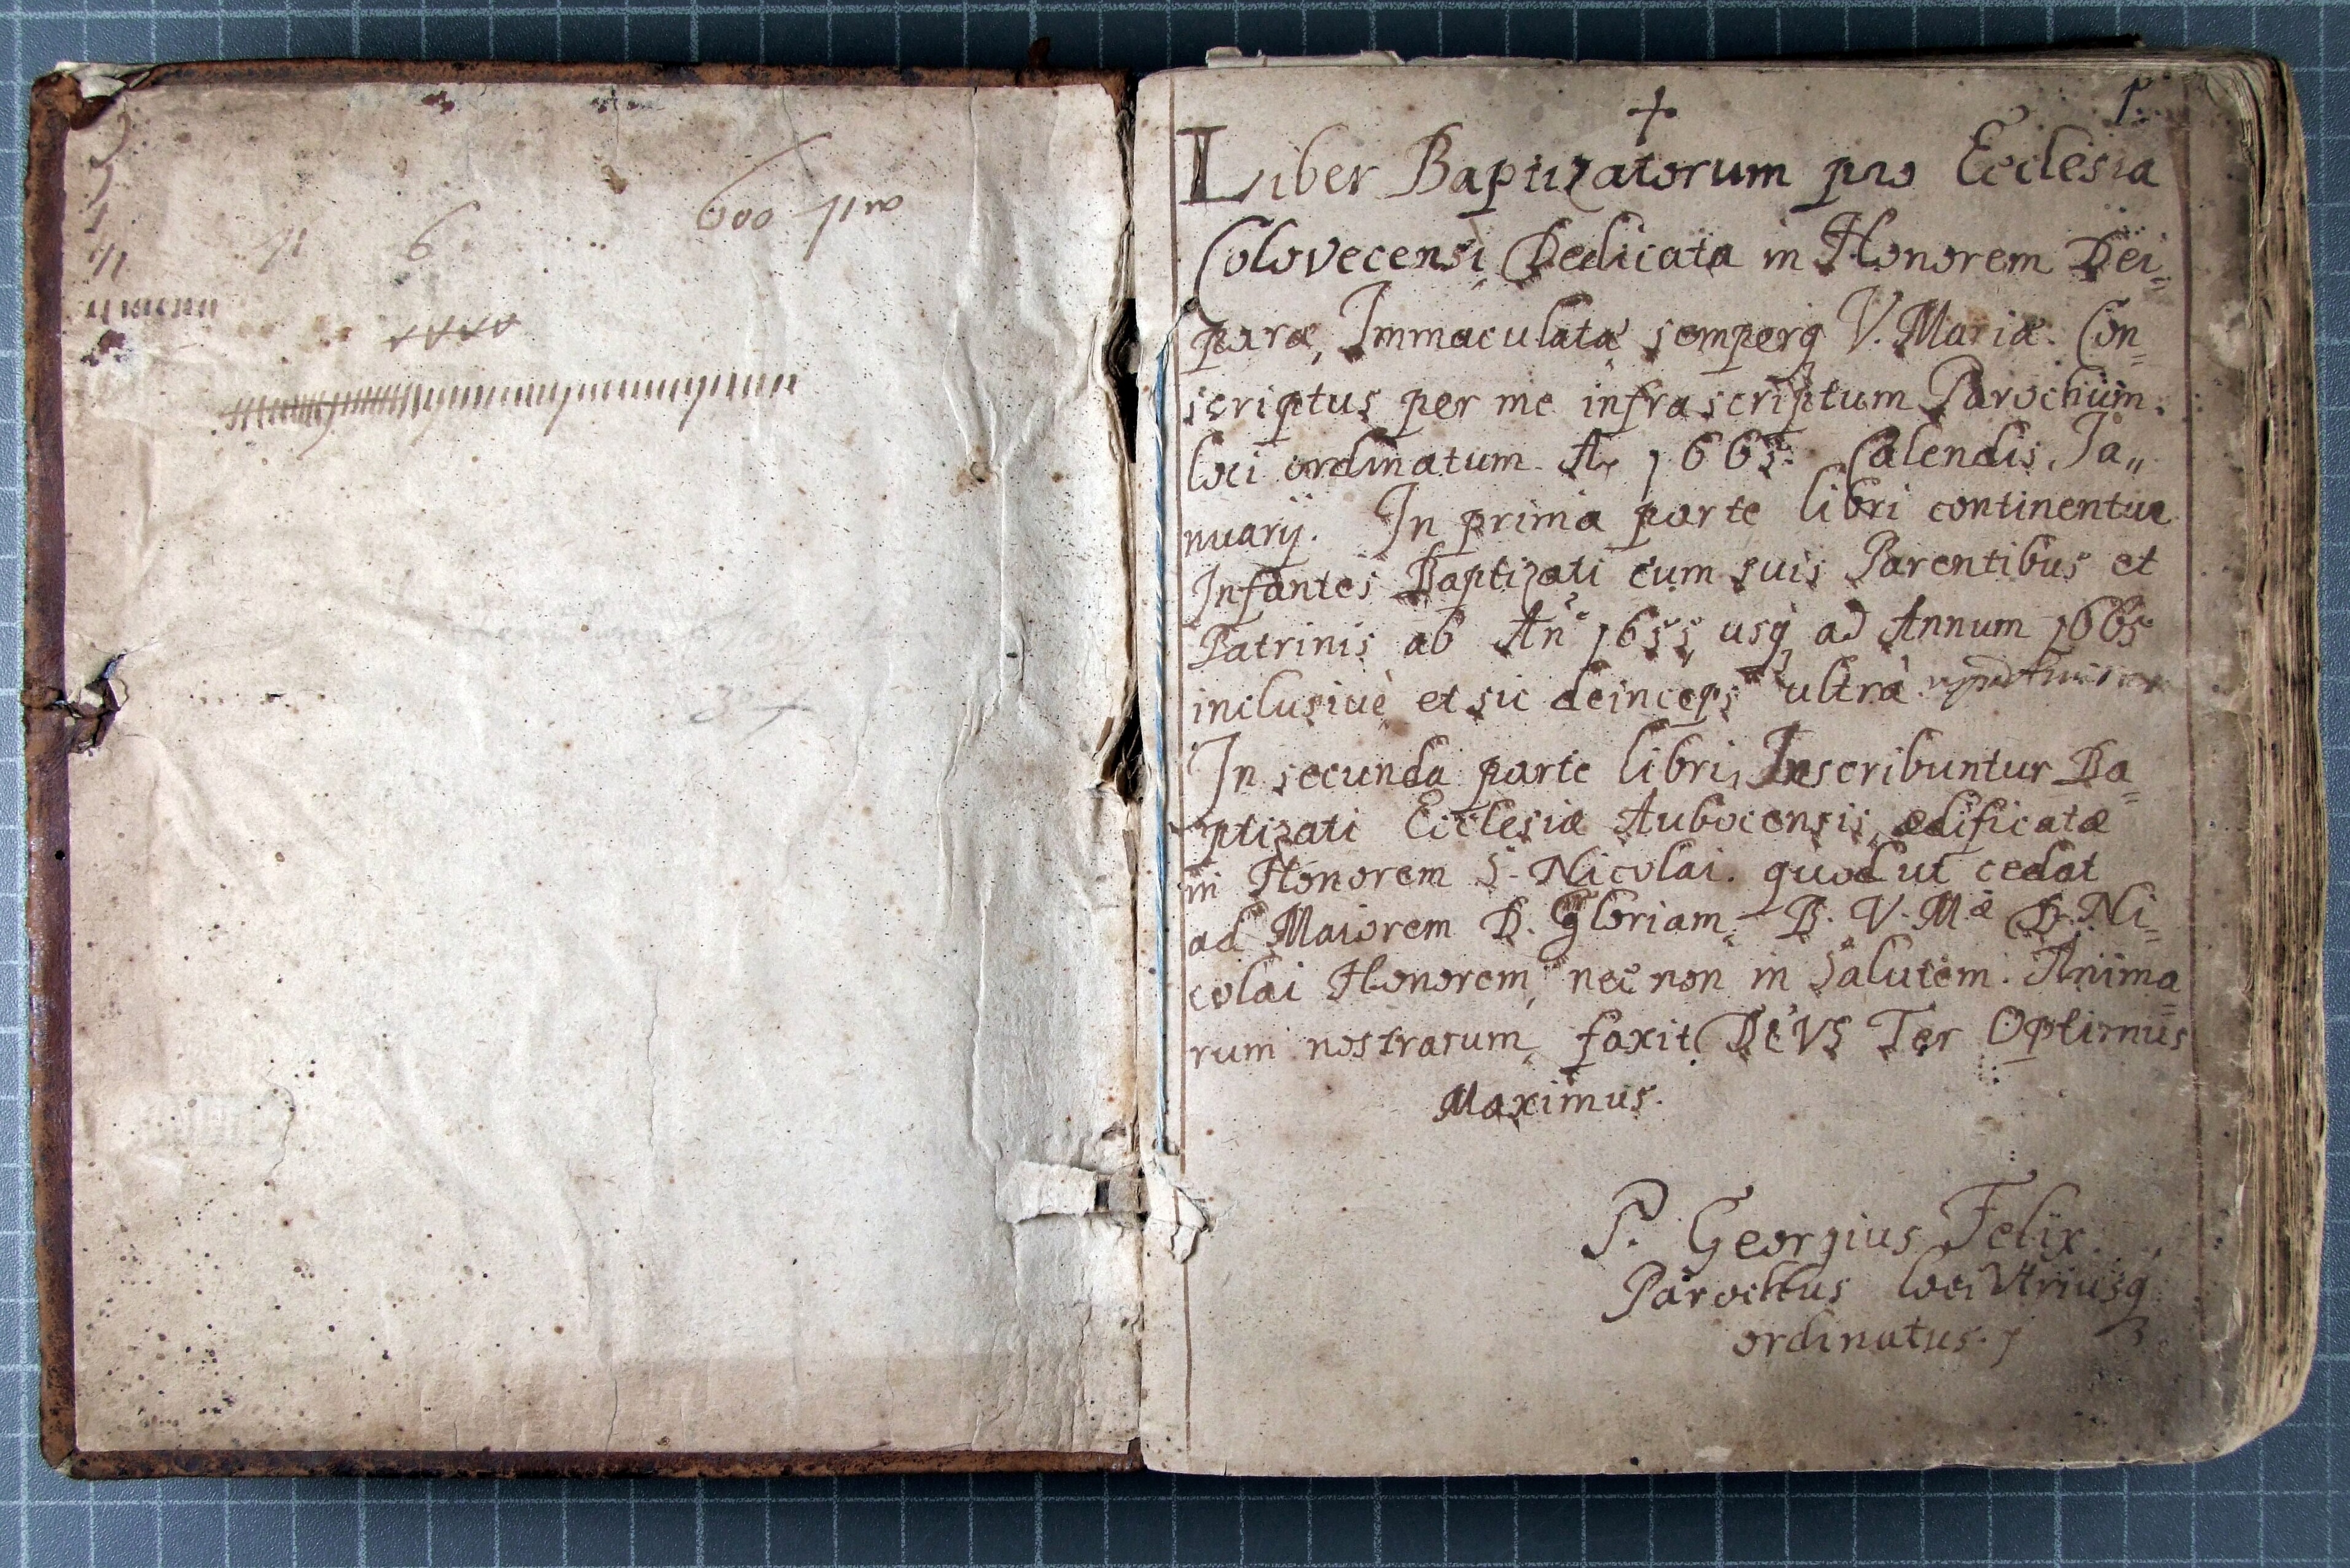 6
600
34
+
1.
Liber Baptizatorum pro Ecclesia
Colovecensi Dedicata in Honorem Dei„
paræ, Immaculatæ semperq V. Mariæ. Con=
scriptus per me infrascriptum Parochum.
loci ordinatum. Aº 1665. Calendis, Ja„
nuarij. In prima parte libri continentur
Infantes Baptizati cum suis Parentibus et
Patrinis ab Anº 1655 usq ad Annum 1665
inclusiuè et sic deinceps ultrà
In secunda parte libri, Inscribuntur Ba=
ptizati Ecclesiæ Aubocensis, ædificatæ
in Honorem S. Nicolai. quod ut cedat
ad Maiorem D. Gloriam, B. V. Mæ D. Ni=
colai Honorem, nec non in Salutem. Anima=
rum nostrarum, faxit DEVS Ter Optimus
Maximus.
P. Georgius Felix
Parochus loci Vtriusq
ordinatus.